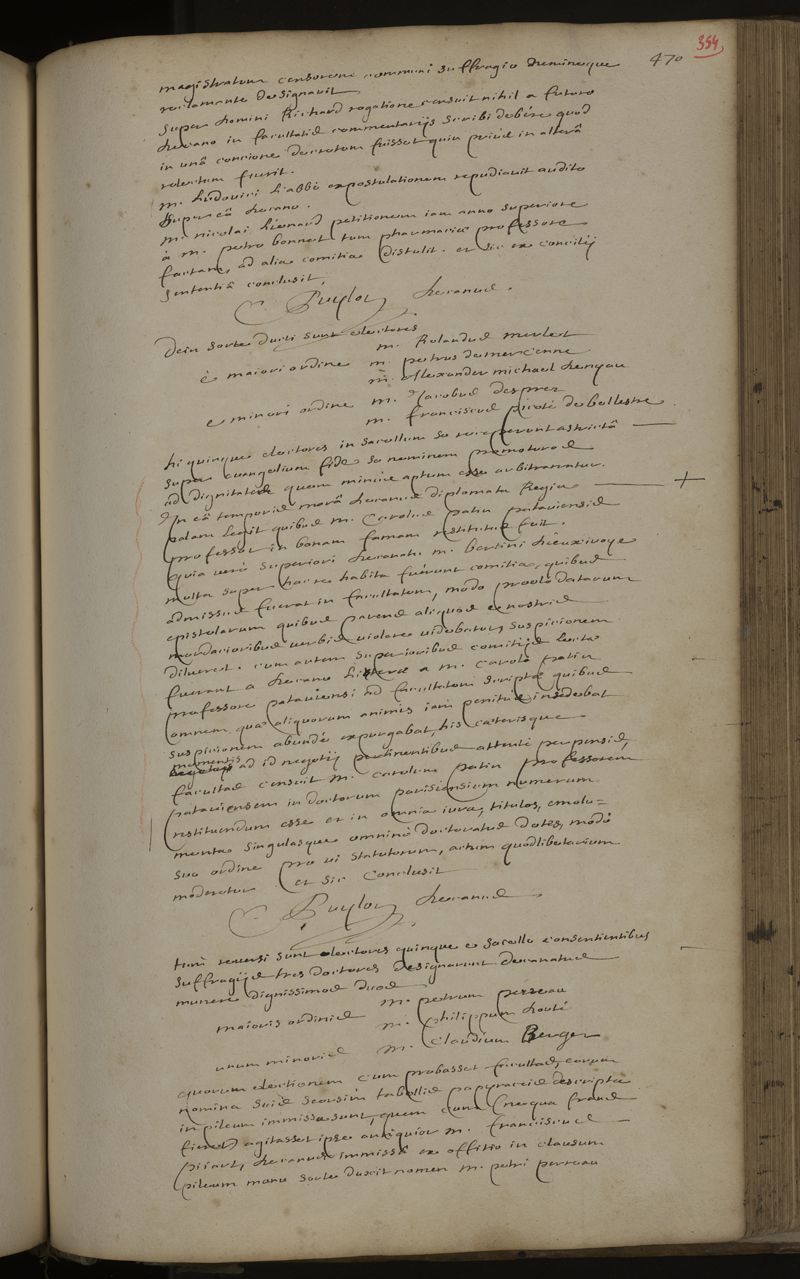 354
470
magistratum censorem communi suffragio nemineque
reclamante designavit
super domini Richard rogatione censuit nihil a futuro
decano in facultatis commentarijs scribi debere quod
in unâ concione decretum fuisset quin prius in alterâ
relectum fuerit.
m. Ludovici L'abbé expostulationem repudiavit audito
super eâ decano.
m. nicolai Lienard petitionem iam anno superiore
à m. petro bonnet tum pharmaciae professore
factam, ad alia comitia distulit. et sic ex concilij
sententiâ conclusit,
Puylon decanus.
Dein sorte ducti sunt electores
m. Rolandus merlet
è maiori ordine m. petrus de mercenne
m. Alexander michael denyau
e minori ordine m. Jacobus desprez
m. franciscus picoté de bellestre
hi quinque electores in sacellum se receperunt astrictâ
super evangelium fide se neminem promoturos
ad dignitatem quem minime aptum esse arbitrarentur.
In eâ temporis morâ decanus diplomata Regia +
palam legit quibus m. Carolus patin pataviensis
professor in bonam famam restitutus fuit.
quia vero superiori decanatu m. bertini dieuxivoye
multa super hac re habita fuerunt comitia, quibus
admissus fuerat in facultatem, modo probè datarum
epistolarum quibus parens aliquos e nostris
mordacioribus verbis violare videbatur, suspicionem
dilueret. cum autem superioribus comitijs lectae
fuerant a decano litterae a m. Carolo patin
professore pataviensi ad facultatem scriptae quibus
omnem, quae aliquorum animis iam penitus insedebat
suspicionem abundè expurgabat, his caeterisque
momentis
ad id negotij pertinentibus attentè perpensis,
facultas censuit m. carolum patin professorem
pataviensem in doctorum parisiensium numerum
restituendum esse et in omnia iura, titulos, emolu=
menta singulasque omnino doctoratus dotes, modò
suo ordine pro vi statutorum, actum quodlibetarium
moderetur et sic conclusit
Puylon decanus.
tum reversi sunt electores quinque e sacello consentientibus
suffragijs tres doctores designarunt decanatus
munere dignissimos duos
maioris ordinis m. petrum perreau
m. philippum douté
unum minoris m. Claudium Berger
quorum electionem cum probasset facultas, eorum
nomina suis seorsim tabellis papyraceis descripta
in pileum immissa sunt, quem cum (nequa fraus
fieret) agitasset ipse antiquior m. franciscus
pijart, decanus immissâ ex officio in clausum
pileum manu sorte duxit nomen m. petri perreau